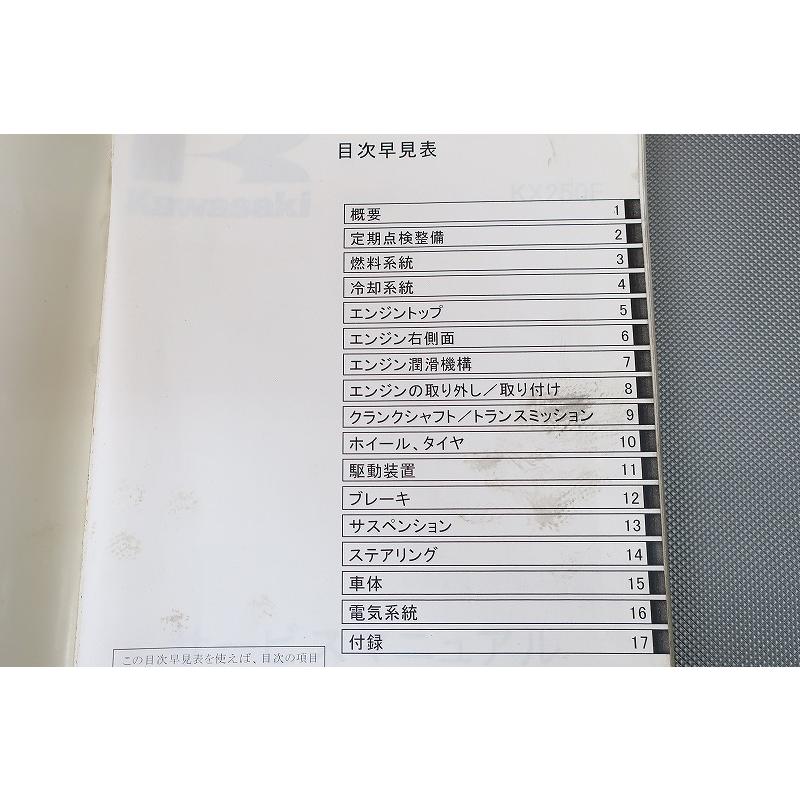 目次早見表
Kawasaki
KX250F
概要 1
定期点検整備 2
燃料系統 3
冷却系統 4
エンジントップ 5
エンジン右側面 6
エンジン潤滑機構 7
エンジンの取り外し／取り付け 8
クランクシャフト／トランスミッション 9
ホイール、タイヤ 10
駆動装置 11
ブレーキ 12
サスペンション 13
ステアリング 14
車体 15
電気系統 16
付録 17
この目次早見表を使えば、目次の項目